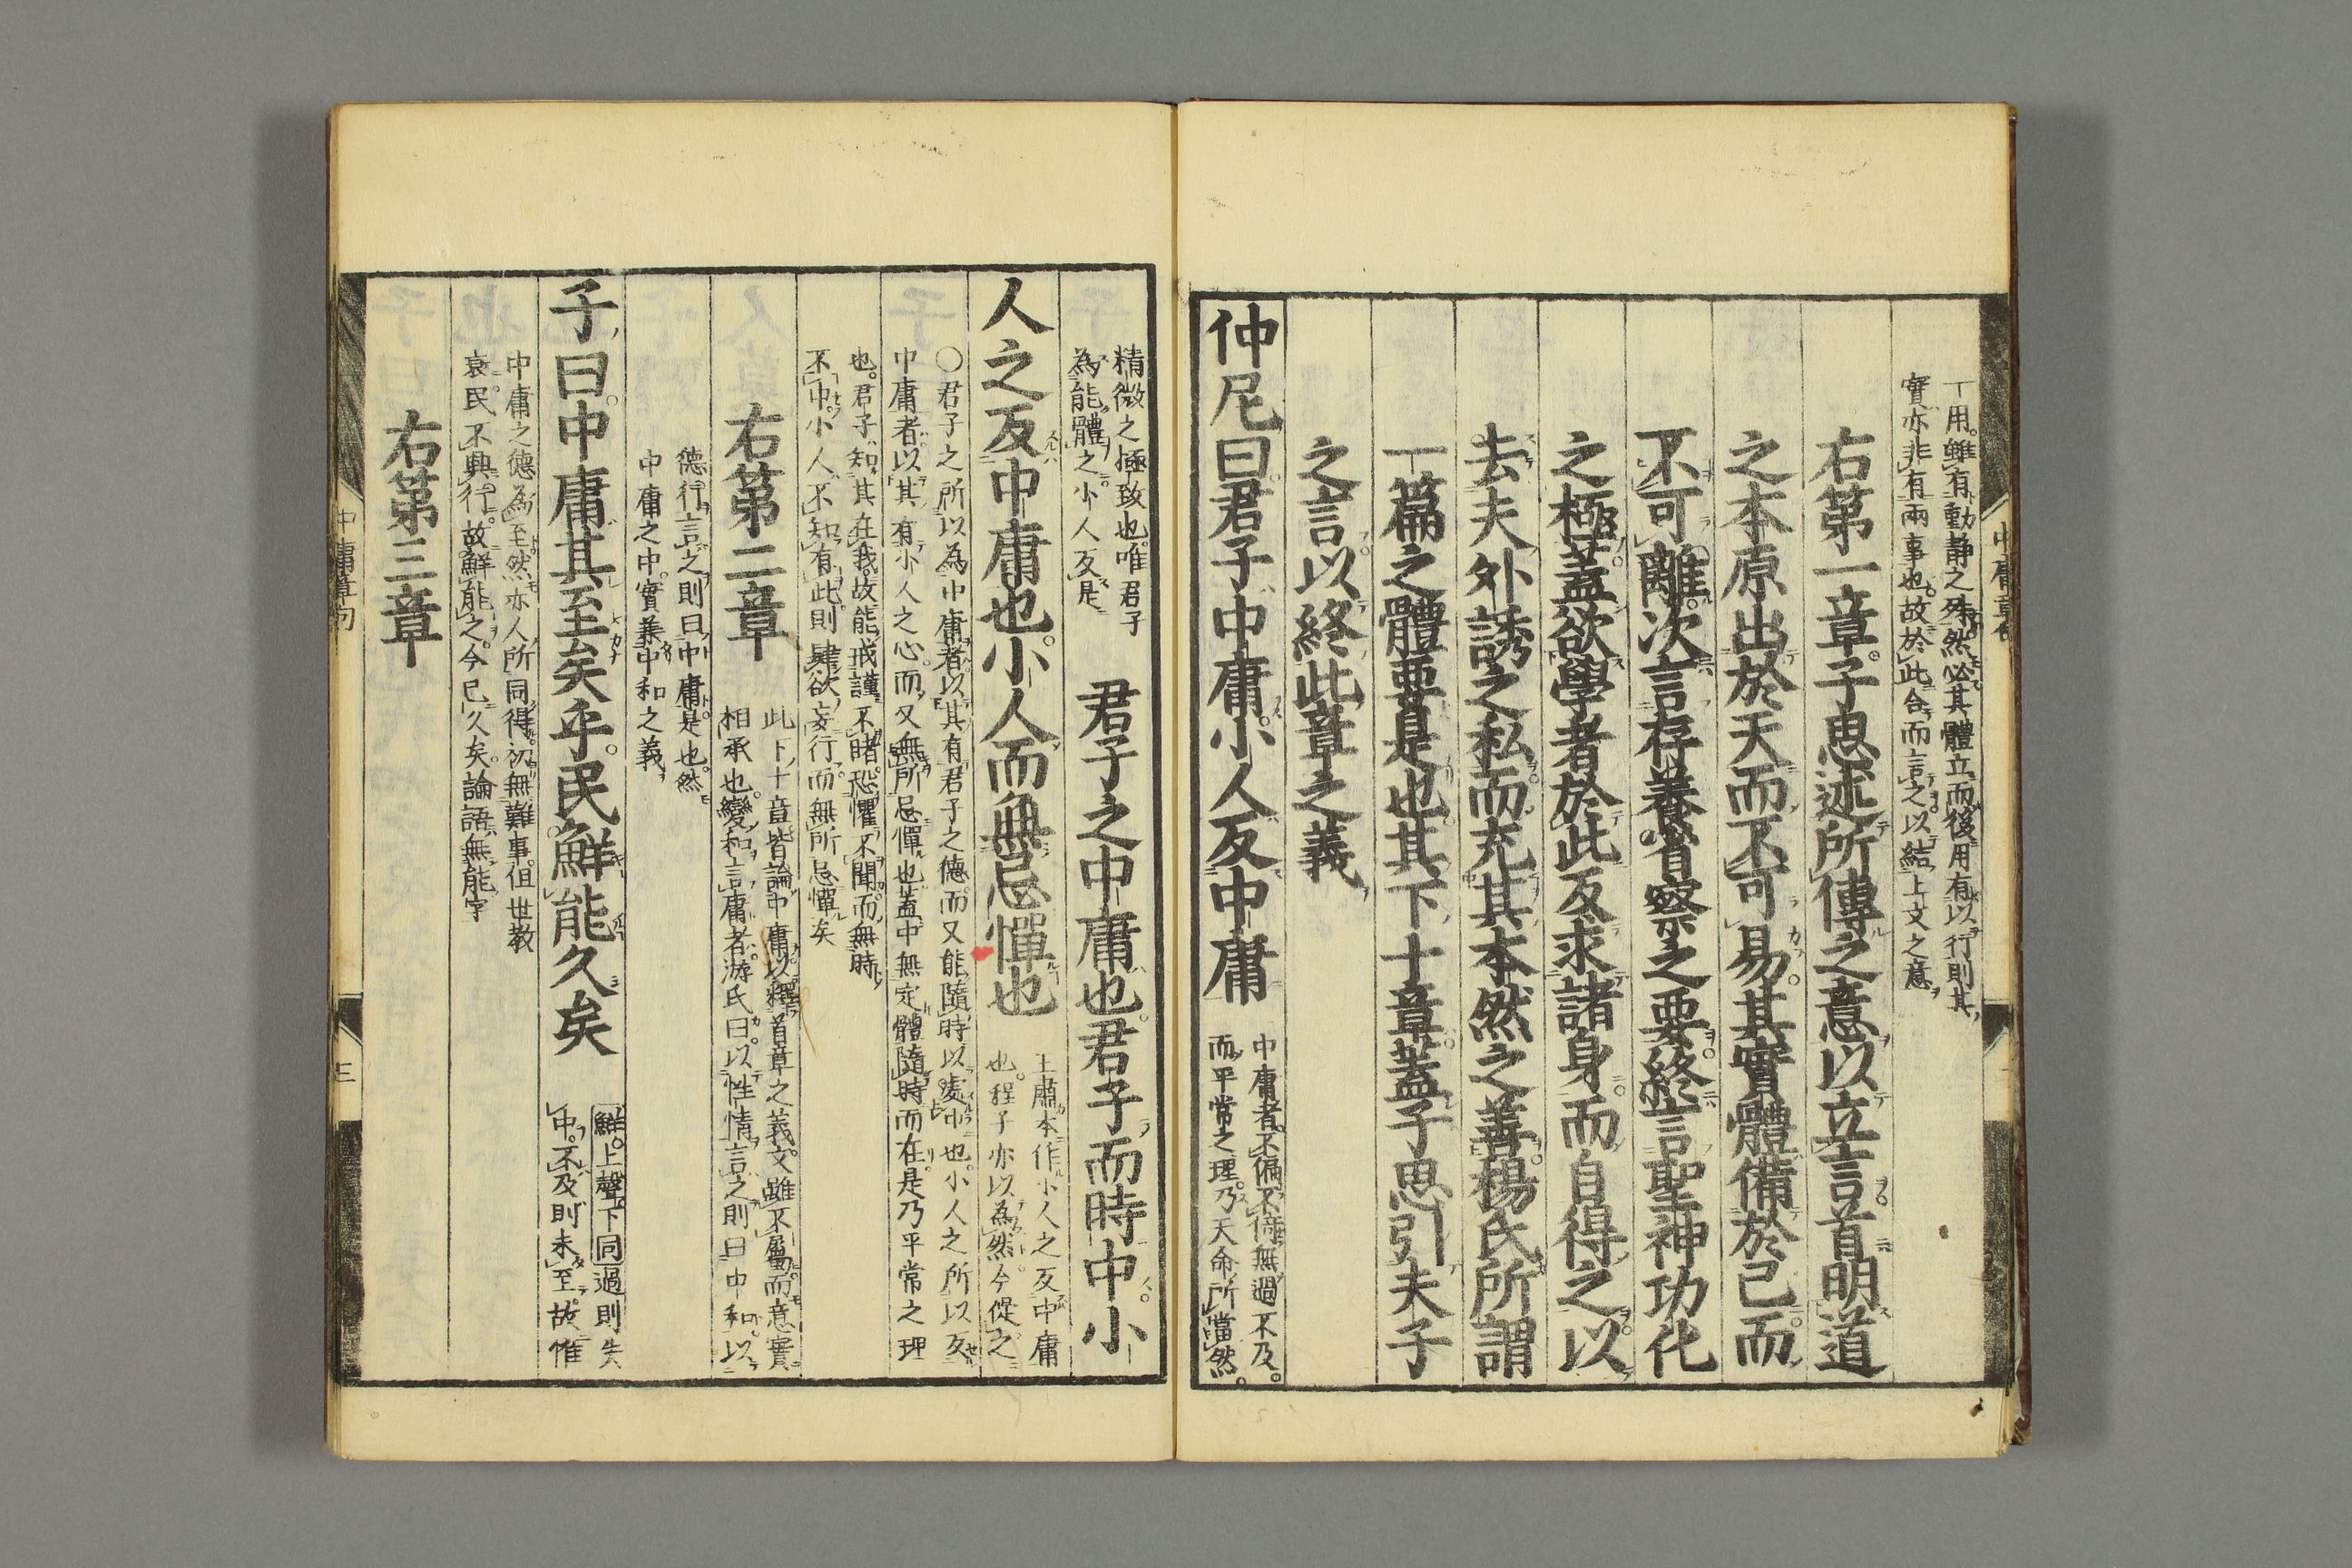 一用雖有動靜之殊然必其體立而後用有以行則其
實亦非有兩事也故於此合而言之以結上文之意
右第一章子思述所傳之意以立言首明道
之本原出於天而不可易其實體備於己而
不可離次言存養省察之要終言聖神功化
之極蓋欲學者於此反求諸身而自得之以
去夫外誘之私而充其本然之善楊氏所謂
一篇之體要是也其下十章蓋子思引夫子
之言以終此章之義
仲尼曰君子中庸小人反中庸
中庸者不偏不倚無過不及
而平常之理乃天命所當然
精微之極致也唯君子
為能體之小人反是
君子之中庸也君子而時中小
人之反中庸也小人而無忌憚也
王肅本作小人之反中庸
也程子亦以為然今從之
○君子之所以為中庸者以其有君子之德而又能隨時以處中也小人之所以反
中庸者以其有小人之心而又無所忌憚也蓋中無定體隨時而在是乃平常之理
也君子知其在我故能戒謹不睹恐懼不聞而無時
不中小人不知有此則肆欲妄行而無所忌憚矣
右第二章
此下十章皆論中庸以釋首章之義文雖不屬而意實
相承也變和言庸者游氏曰以性情言之則曰中和以
德行言之則曰中庸是也然
中庸之中實兼中和之義
子曰中庸其至矣乎民鮮能久矣
鮮上聲下同過則失
中不及則未至故惟
中庸之德為至然亦人所同得初無難事但世教
衰民不興行故鮮能之今已久矣論語無能字
右第三章
中庸章句
三